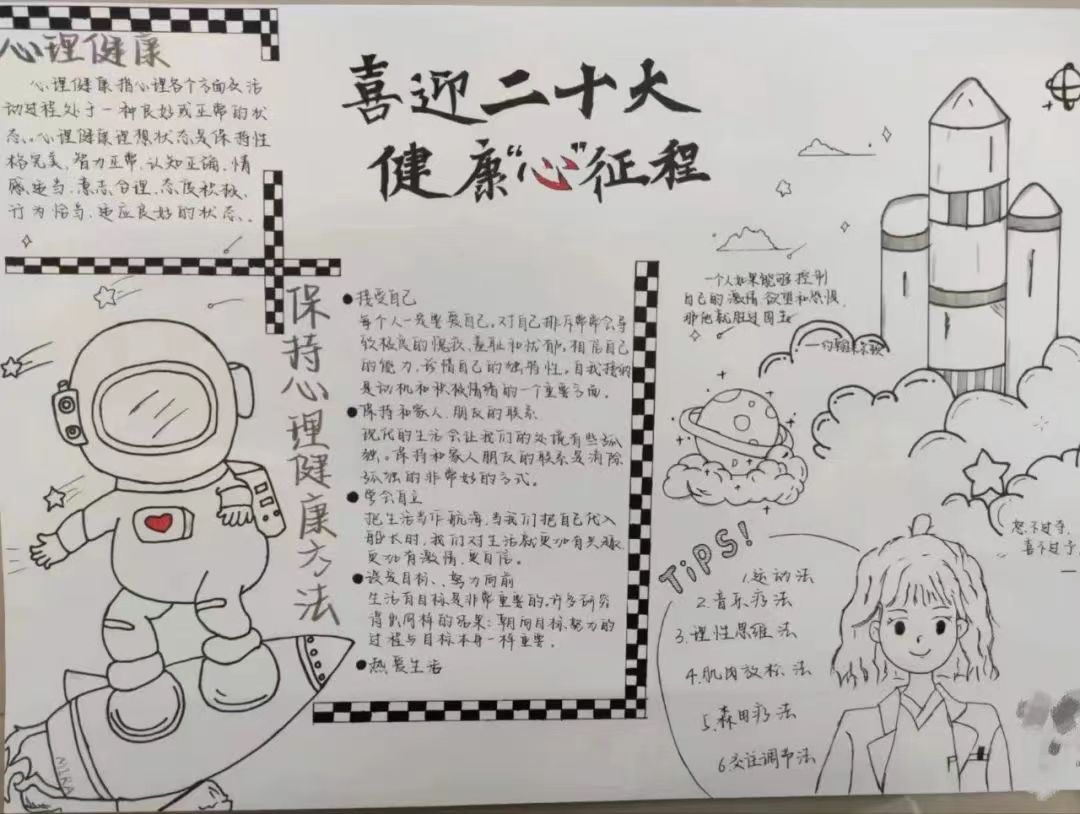 心理健康
心理健康指心理各个方面及活
动过程处于一种良好或正常的状
态。心理健康理想状态是保持性
格完美、智力正常、认知正确、情
感适当、意志合理、态度积极、
行为恰当、适应良好的状态。
喜迎二十大
健康“心”征程
保持心理健康方法
●接受自己
每个人一定要爱自己,对自己排斥常常会导
致极良的愧疚、羞耻和忧郁,相信自己
的能力,珍惜自己的独特性。自我接纳
是动机和积极情绪的一个重要方面。
●保持和家人、朋友的联系
现代的生活会让我们的处境有些孤
独。保持和家人朋友的联系是消除
孤独的非常好的方式。
●学会自立
把生活当作航海,当我们把自己代入
船长时,我们对生活就更加有兴趣,
更加有激情、更自信。
●设定目标、努力向前
生活有目标是非常重要的,许多研究
得出同样的结果:朝向目标努力的
过程与目标本身一样重要。
●热爱生活
一个人如果能够控制
自己的激情、欲望和恐惧,
那他就胜过国王
——约翰·
TiPS!
1.运动法
2.音乐疗法
3.理性思维法
4.肌肉放松法
5.森田疗法
6交往调节法
怒不过夺,
喜不过予。
MIRA